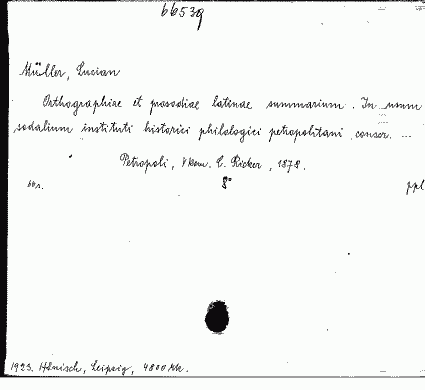 66539
Müller, Lucian
Orthographiae et prosodiae latinae summarium. In usum
sodalium instituti historici philologici petropolitani conscr. ...
Petropoli, C. Ricker, 1878.
60s. 8° ppl
1923. Hänisch, Leipzig, 4800 Mk.